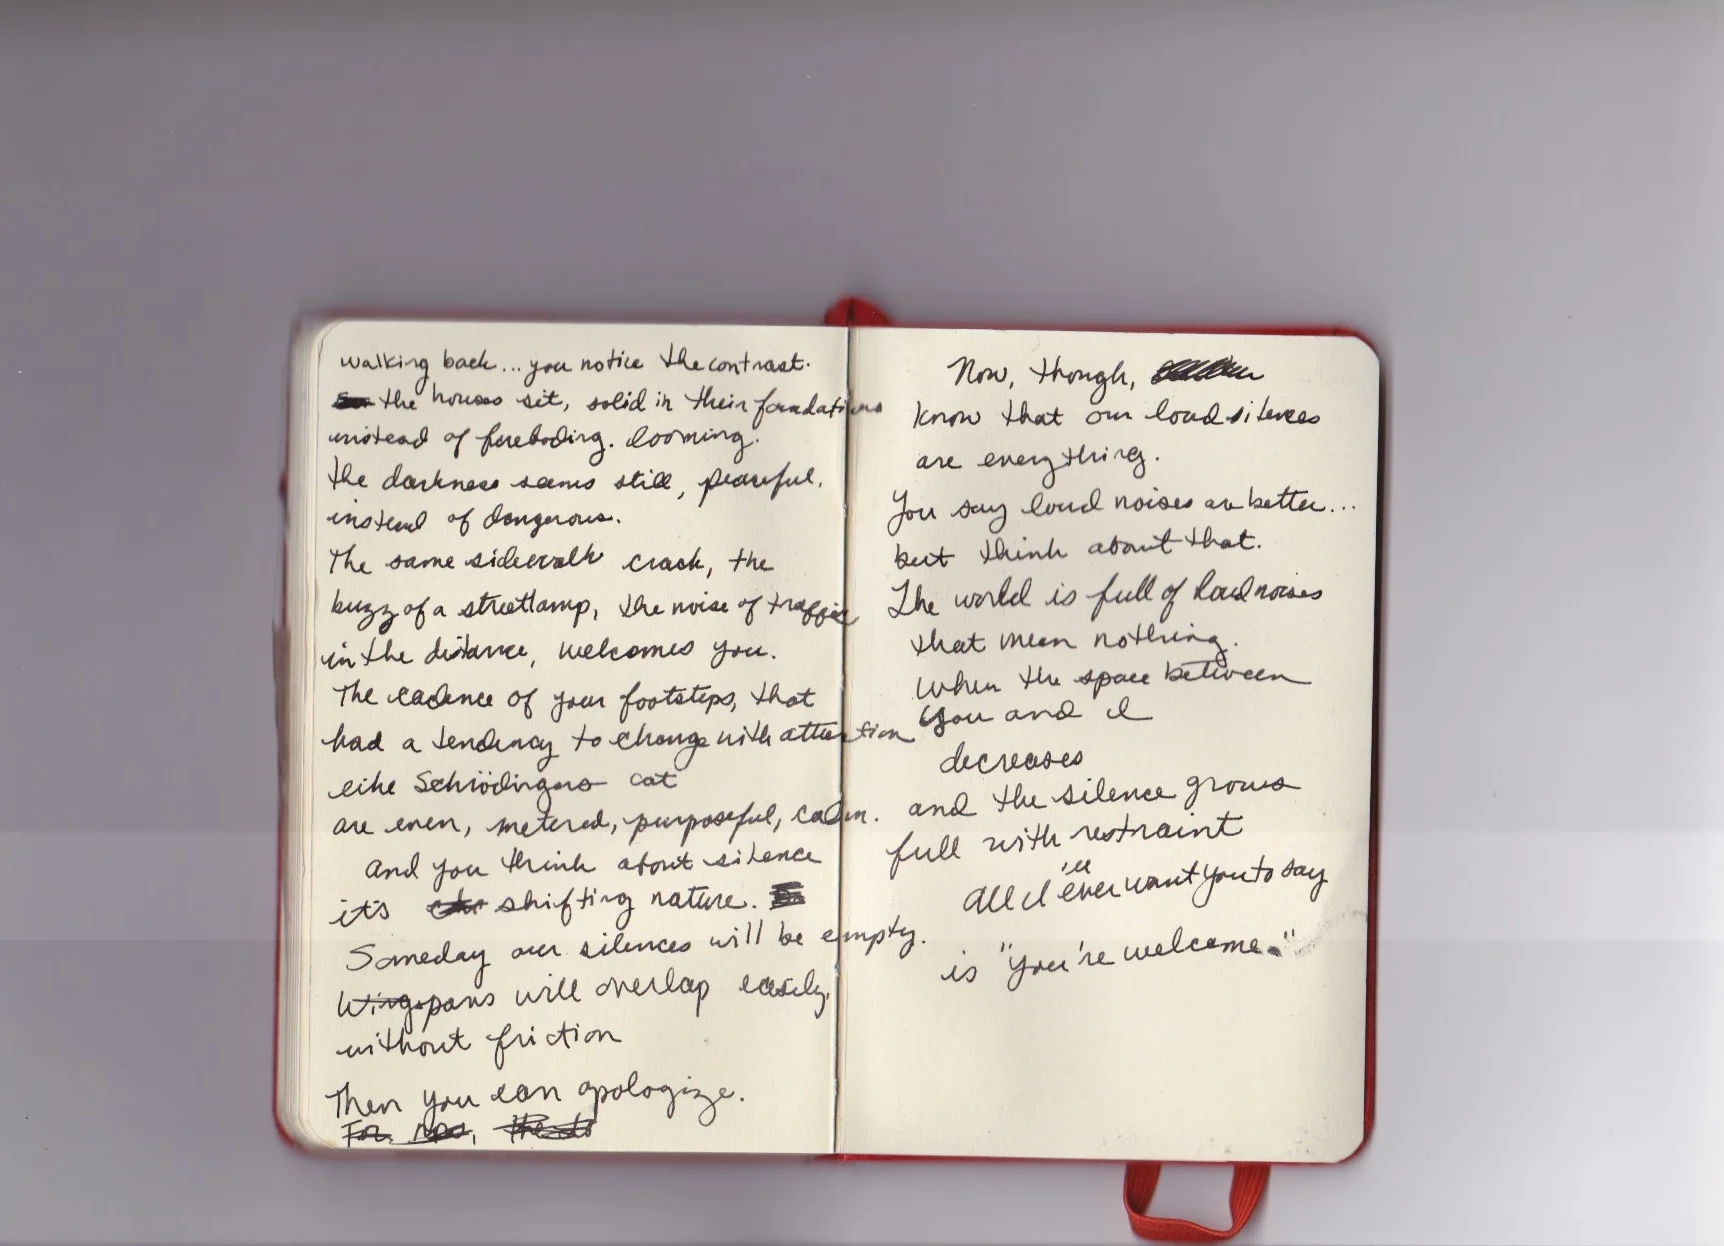 walking back... you notice the contrast.
the houses sit, solid in their foundations
instead of foreboding. looming.
the darkness seems still, peaceful,
instead of dangerous.
The same sidewalk crack, the
buzz of a streetlamp, the noise of traffic
in the distance, welcomes you.
The cadence of your footsteps, that
had a tendency to change with attention
like Schrödingers cat
are even, metered, purposeful, calm.
and you think about silence
it's shifting nature.
Someday our silences will be empty.
Wingspans will overlap easily,
without friction
Then you can apologize.
For now,
Now, though,
know that our loud silences
are everything.
You say loud noises are better...
but think about that.
The world is full of loud noises
that mean nothing.
When the space between
you and I
decreases
and the silence grows
full with restraint
All I'll ever want you to say
is "you're welcome."